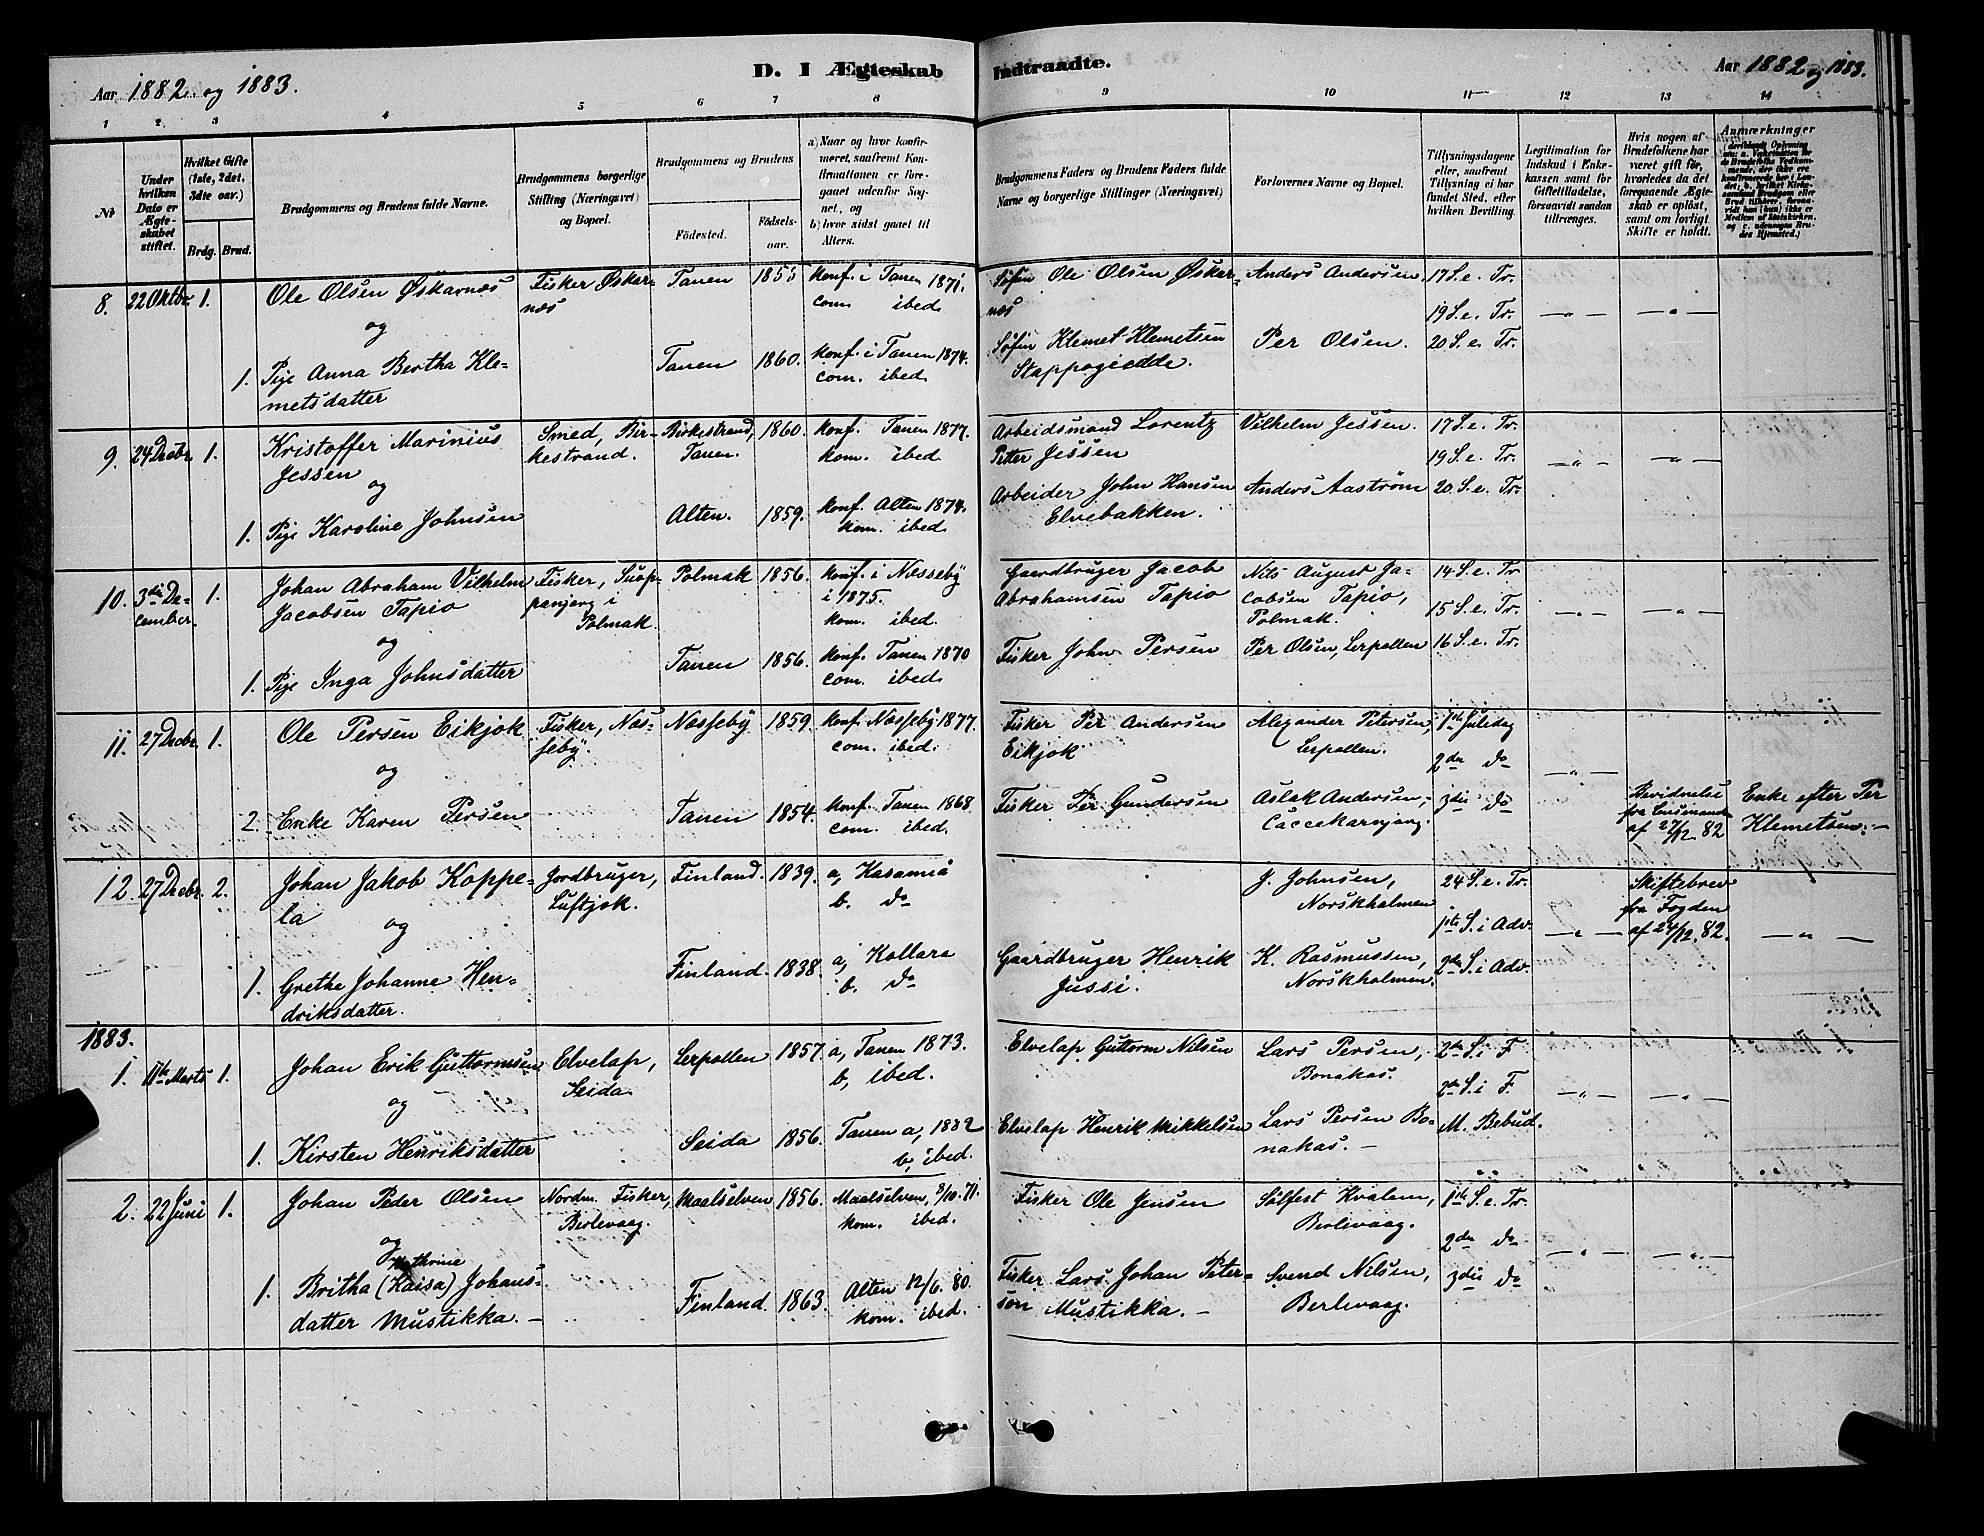 Aar 1882 og 1883.
D. I Ægteskab Indtraadte.
Aar 1882 og 1883.
1 2 3 4 5 6 7 8 9 10 11 12 13 14
No
Under hvilken Dato er Ægteskabet stiftet.
Hvilket Gifte (1ste, 2det, 3dte osv.)
Brdg. Brud.
Brudgommens og Brudens fulde Navne.
Brudgommens borgerlige Stilling (Næringsvei) og Bopæl.
Brudgommens og Brudens
Fødested.
Fødselsaar.
a) Naar og hvor konfirmeret, saafremt Konfirmationen er foregaaet udenfor Sognet, og
b) hvor sidst gaaet til Alters.
Brudgommens Faders og Brudens Faders fulde Navne og borgerlige Stillinger (Næringsvei)
Forlovernes Navne og Bopæl.
Tillysningsdagene eller, saafremt Tillysning ei har fundet Sted, efter hvilken Bevilling.
Legitimation for Indskud i Enkekassen samt for Giftetilladelse, forsaavidt saadan tiltrænges.
Hvis nogen af Brudefolkene har været gift før, hvorledes da det foregaaende Ægteskab er opløst, samt om lovligt Skifte er holdt.
Anmærkninger
8. 22 Oktbr. 1.
Ole Olsen Øskarnæs
og
1. Pige Anna Bertha Kle-
metsdatter
Fisker Øskar-
næs
Tanen 1855
konf. i Tanen 1871.
com. ibed.
Tanen 1860.
konf. i Tanen 1874.
com. ibed.
Søfin Ole Olsen Øskar-
næs
Søfin Klemet Klemetsen
Stappogiedde.
Anders Andersen
Per Olsen.
17 S. e. Tr.
19 S. e. Tr.
20 S. e. Tr.
9. 24 Decbr. 1.
Kristoffer Marinius
Jessen
og
1. Pige Karoline Johnsen
Smed, Bir-
kestrand.
Birkestrand,
Tanen.
1860.
konf. Tanen 1877.
kom. ibed
Alten. 1859.
konf. Alten 1874.
kom. ibed
Arbeidsmand Lorentz
Petter Jessen
Arbeider John Hansen
Elvebakken.
Vilhelm Jessen.
Anders Aastrøm
17 S. e. Tr.
19 S. e. Tr.
20. S. e. Tr.
10. 3die De-
cember. 1.
Johan Abraham Vilhelm
Jacobsen Tapio
og
1. Pige Inga Johnsdatter
Fisker, Suop-
panjarg i
Polmak.
Polmak 1856.
konf. i Næsseby
i 1875.
kom. ibed.
Tanen 1856.
konf. Tanen 1870
com. ibed.
Gaardbruger Jacob
Abrahamsen Tapio
Fisker John Persen
Nils August Ja-
cobsen Tapio,
Polmak.
Per Olsen, Lerpollen
14 S. e. Tr
15 S. e. Tr.
16 S. e. Tr.
11. 27 Decbr. 1.
Ole Persen Eikjok
og
2. Enke Karen Persen
Fisker, Næs-
seby.
Næsseby 1859.
konf. Næsseby 1877.
com. ibed.
Tanen 1854.
konf. Tanen 1868
com. ibed.
Fisker Per Andersen
Eikjok
Fisker Per Gundersen
Alexander Petersen,
Lerpollen.
Aslak Andersen,
1ste Juledag
2den do
3die do
Bevidnelse
fra Lensmand
af 27/12 82
Enke efter Per
Klemetsen.
12. 27 Decbr. 2.
Johan Jakob Koppe-
la
og
1. Grethe Johanne Hen-
driksdatter.
Jordbruger,
Luftjok.
Finland. 1839.
a,
b. do
Finland. 1838.
a, Kollare
b. do
Gaardbruger Henrik
Jussi.
J. Johnsen,
Norskholmen
K. Rasmussen,
Norskholmen.
24 S. e. Tr.
1ste S. i Adv.
2den S. i Adv.
Skiftebrev
fra Fogden
af 24/12. 82.
1883.
1. 11te Marts 1.
Johan Erik Guttormsen
og
1. Kirsten Henriksdatter
Elvelap,
Seida
Lerpollen 1857.
a, Tanen 1873.
b, ibed.
Seida 1856.
Tanen a, 1882
b, ibed.
Elvelap Guttorm Nilsen
Elvelap Henrik Mikkelsen
Lars Persen,
Bonakas.
Lars Persen Bo-
nakas.
2den S. i F.
2den S. i F.
M. Bebud.
2. 22 Juni 1.
Johan Peder Olsen
og
Kathrine
1. Britha (Kaisa) Johans-
datter Mustikka.
Nordm. Fisker,
Berlevaag.
Maalselven 1856.
Maalselven, 8/10. 71.
kom. ibed.
Finland. 1863.
Alten 12/6. 80.
kom. ibed.
Fisker Ole Jensen
Fisker Lars Johan Peter-
son Mustikka.
Sølfest Kvalem,
Berlevaag.
Svend Nilsen,
Berlevaag.
1ste S. e. Tr.
2den do
3die do